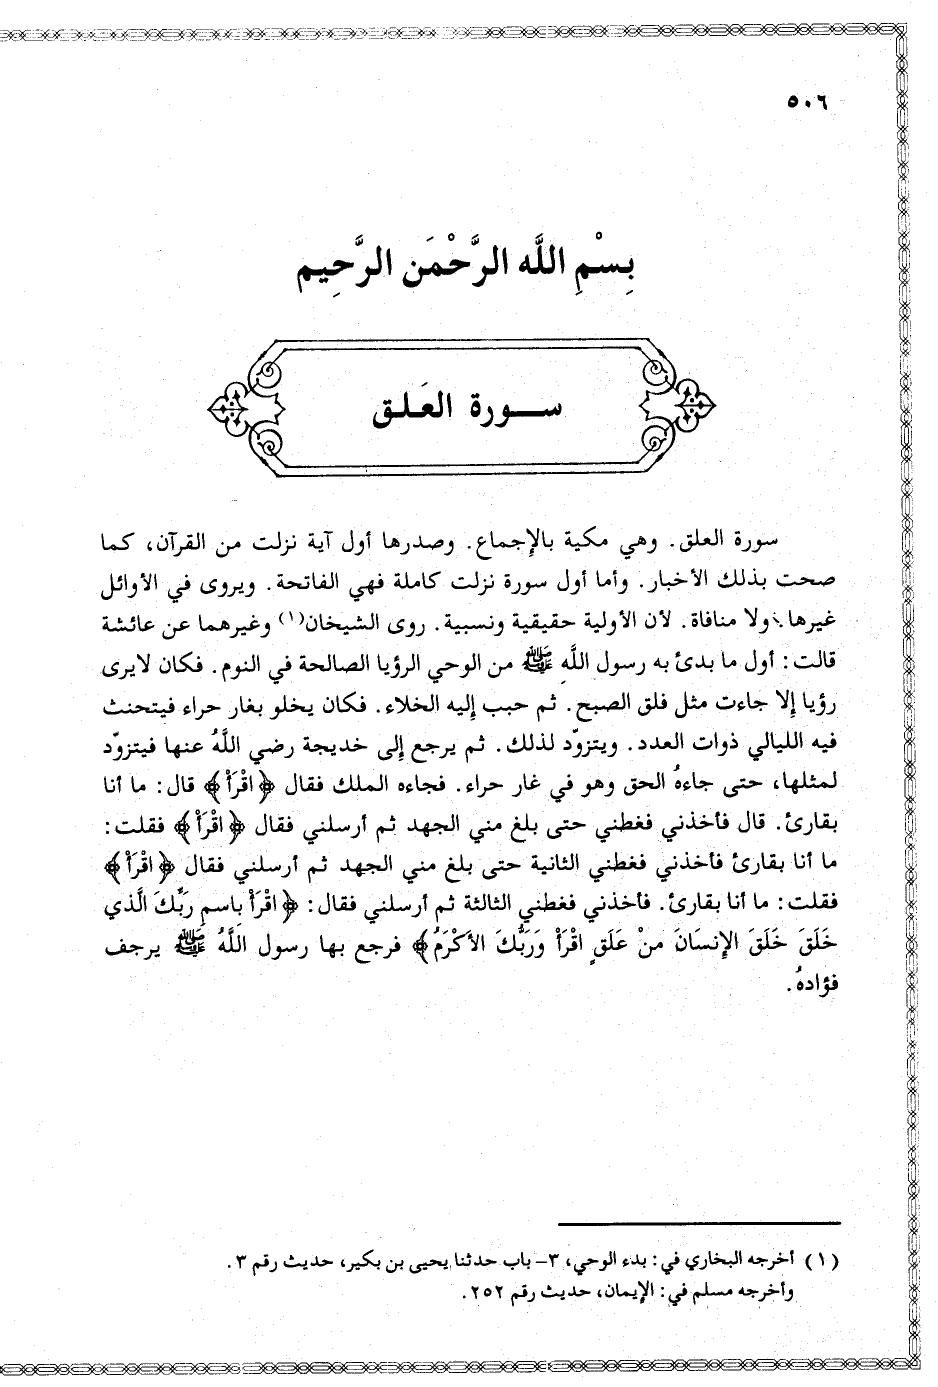 ٥٠٦
بِسْمِ اللَّه الرَّحْمَن الرَّحِيم
سـورة العَـلـق
سورة العلق. وهي مكية بالإجماع. وصدرها أول آية نزلت من القرآن، كما
صحت بذلك الأخبار. وأما أول سورة نزلت كاملة فهي الفاتحة. ويروى في الأوائل
غيرها. ولا منافاة. لأن الأولية حقيقية ونسبية. روى الشيخان(١) وغيرهما عن عائشة
قالت: أول ما بدئ به رسول اللَّهِ ﷺ من الوحي الرؤيا الصالحة في النوم. فكان لايرى
رؤيا إلا جاءت مثل فلق الصبح. ثم حبب إليه الخلاء. فكان يخلو بغار حراء فيتحنث
فيه الليالي ذوات العدد. ويتزوّد لذلك. ثم يرجع إلى خديجة رضي اللَّهُ عنها فيتزوّد
لمثلها، حتى جاءهُ الحق وهو في غار حراء. فجاءه الملك فقال ﴿اقْرَأْ﴾ قال: ما أنا
بقارئ. قال فأخذني فغطني حتى بلغ مني الجهد ثم أرسلني فقال ﴿اقْرَأْ﴾ فقلت:
ما أنا بقارئ فأخذني فغطني الثانية حتى بلغ مني الجهد ثم أرسلني فقال ﴿اقْرَأْ﴾
فقلت: ما أنا بقارئ. فأخذني فغطني الثالثة ثم أرسلني فقال: ﴿اقْرَأْ بِاسمِ رَبِّكَ الَّذي
خَلَقَ خَلَقَ الإنسَانَ مَنْ عَلَقٍ اقْرَأْ وَرَبُّكَ الأَكْرَمُ﴾ فرجع بها رسول اللَّهُ ﷺ يرجف
فؤادهُ.
(١) أخرجه البخاري في: بدء الوحي، ٣- باب حدثنا يحيى بن بكير، حديث رقم ٣.
وأخرجه مسلم في: الإيمان، حديث رقم ٢٥٢.